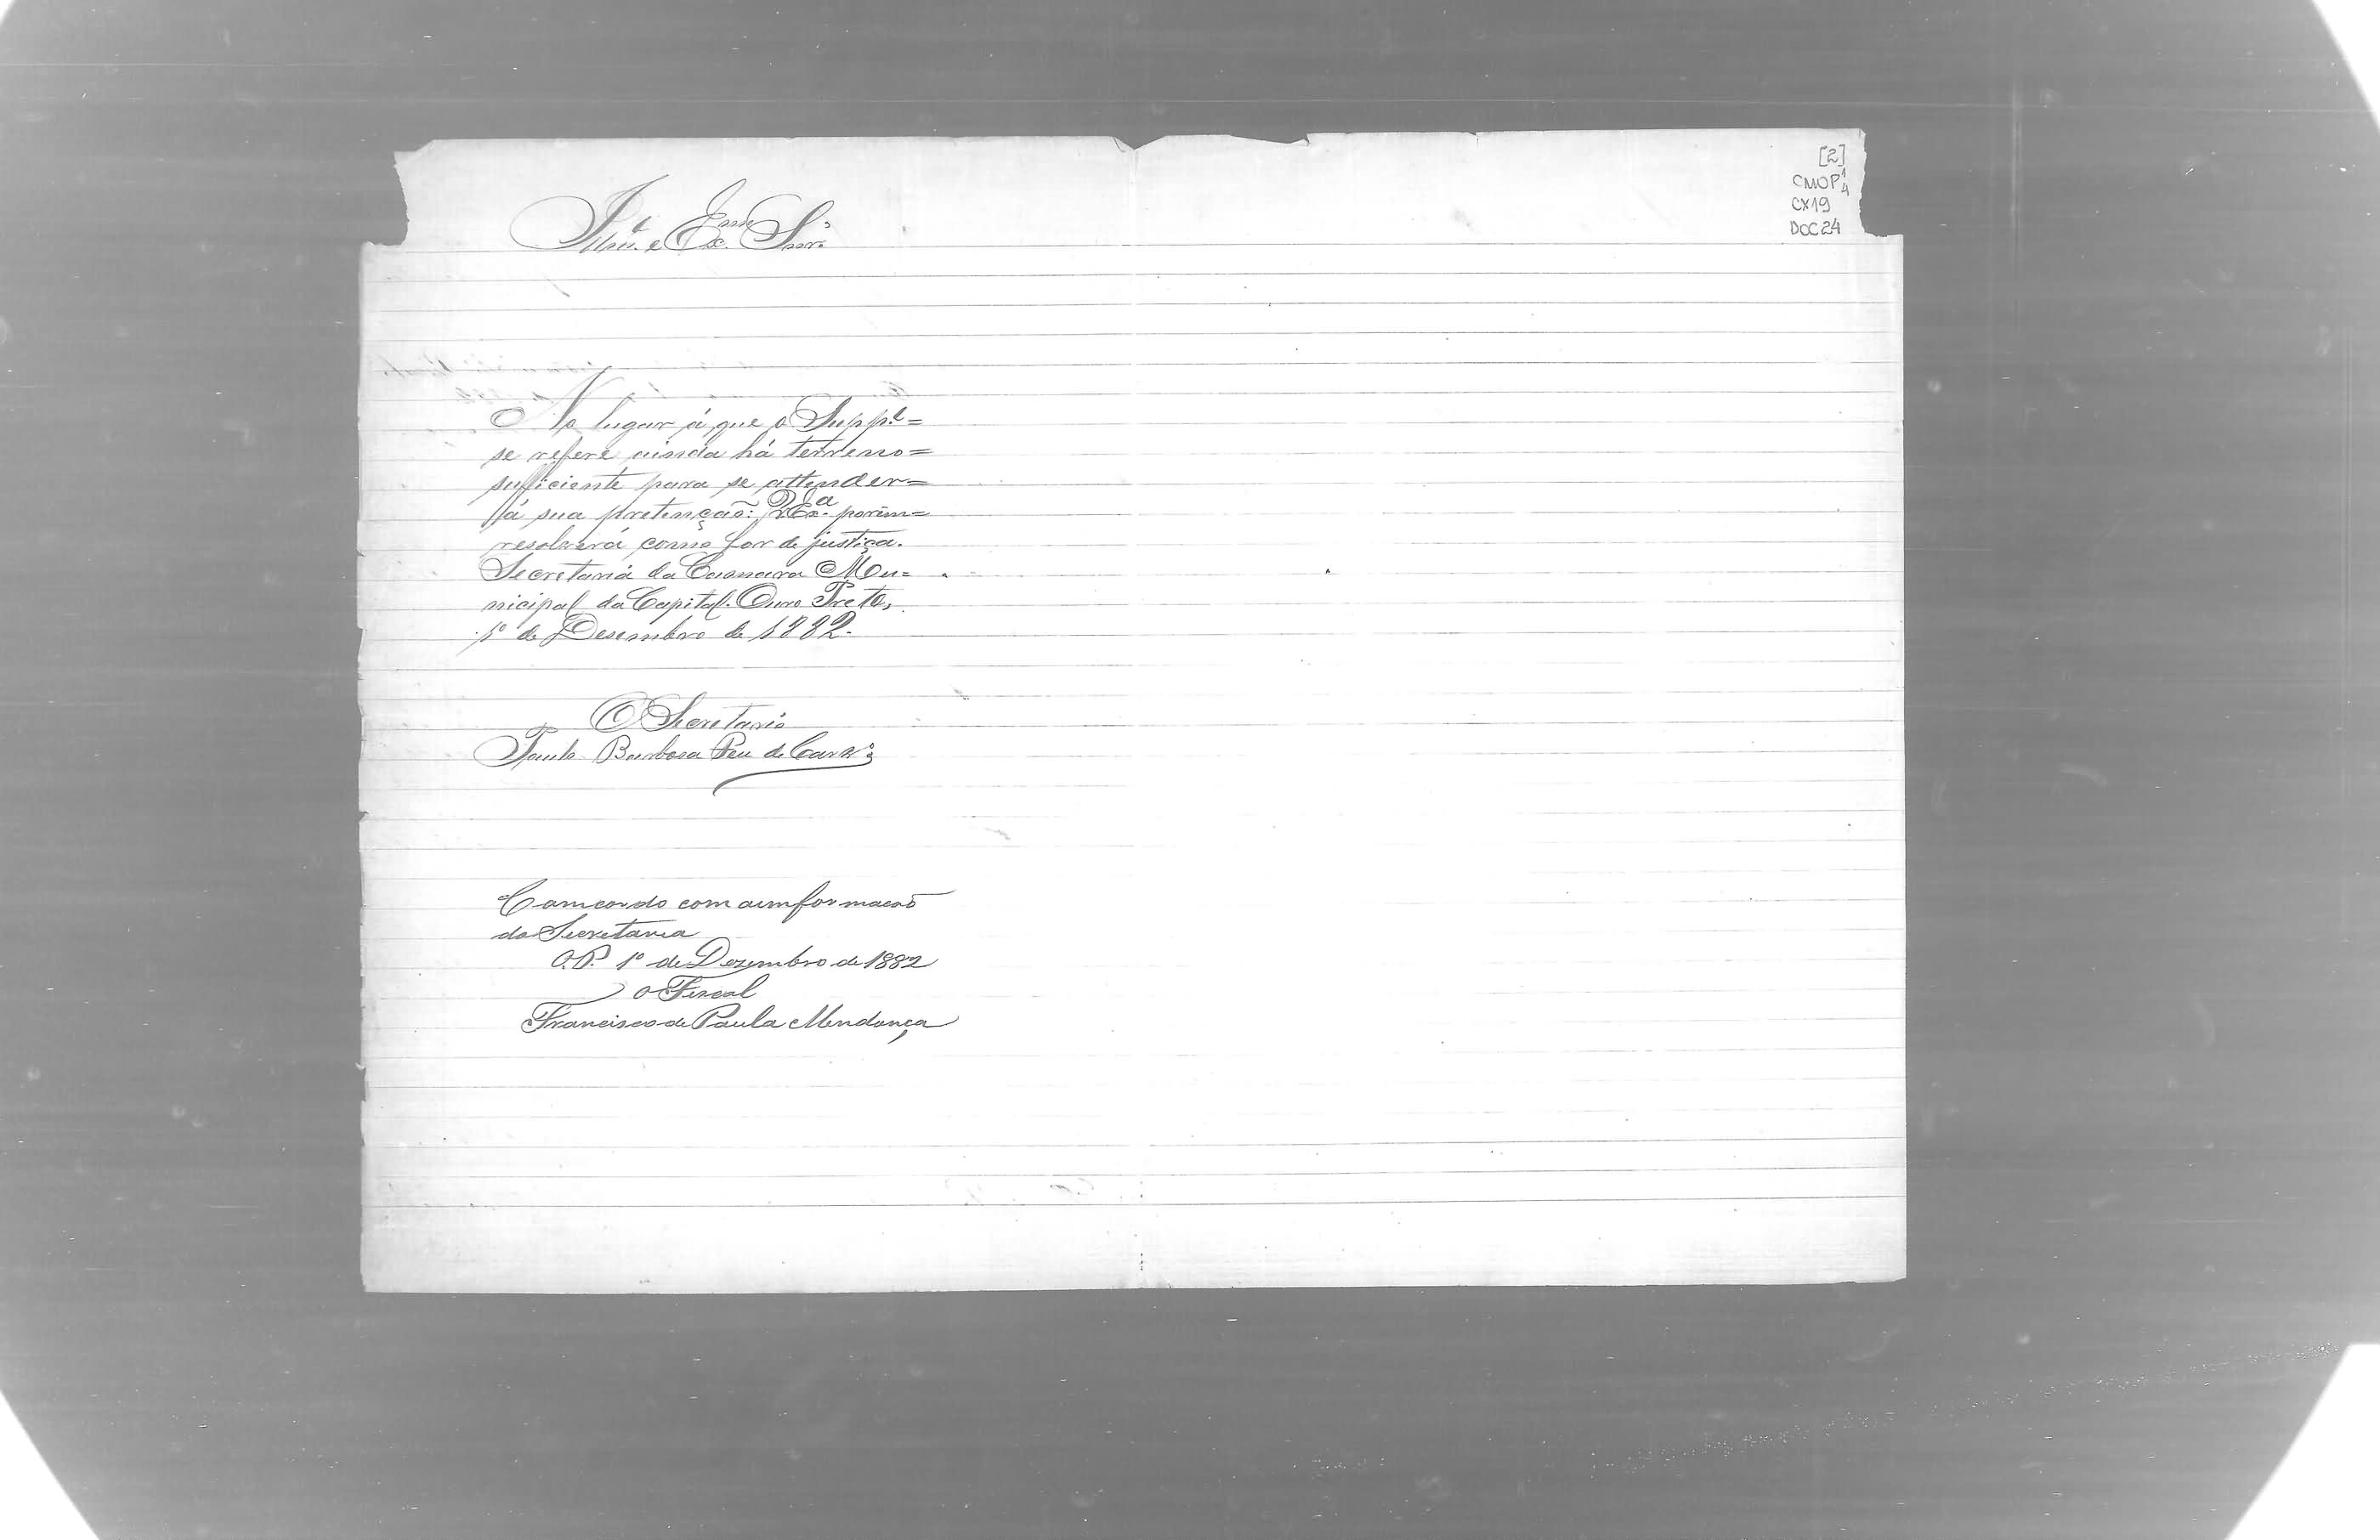 [2]
CMOP 1/4
CX19
DOC 24
Illm. e Exmo. Snr.
No lugar á que o Supp.e=
se refere ainda há terreno=
sufficiente para se attender=
á sua pretenção: V.Ex.a porêm=
resolverá como for de justiça.
Secretaria da Camara Mu=
nicipal da Capital. Ouro Preto,
1º de Desembro de 1882.
O Secretario
Paulo Barbosa de Carv.o
Comcordo com a imformacaõ
da Secretaria
O.P. 1º de Dezembro de 1882
O Fiscal
Francisco de Paula Mendonça